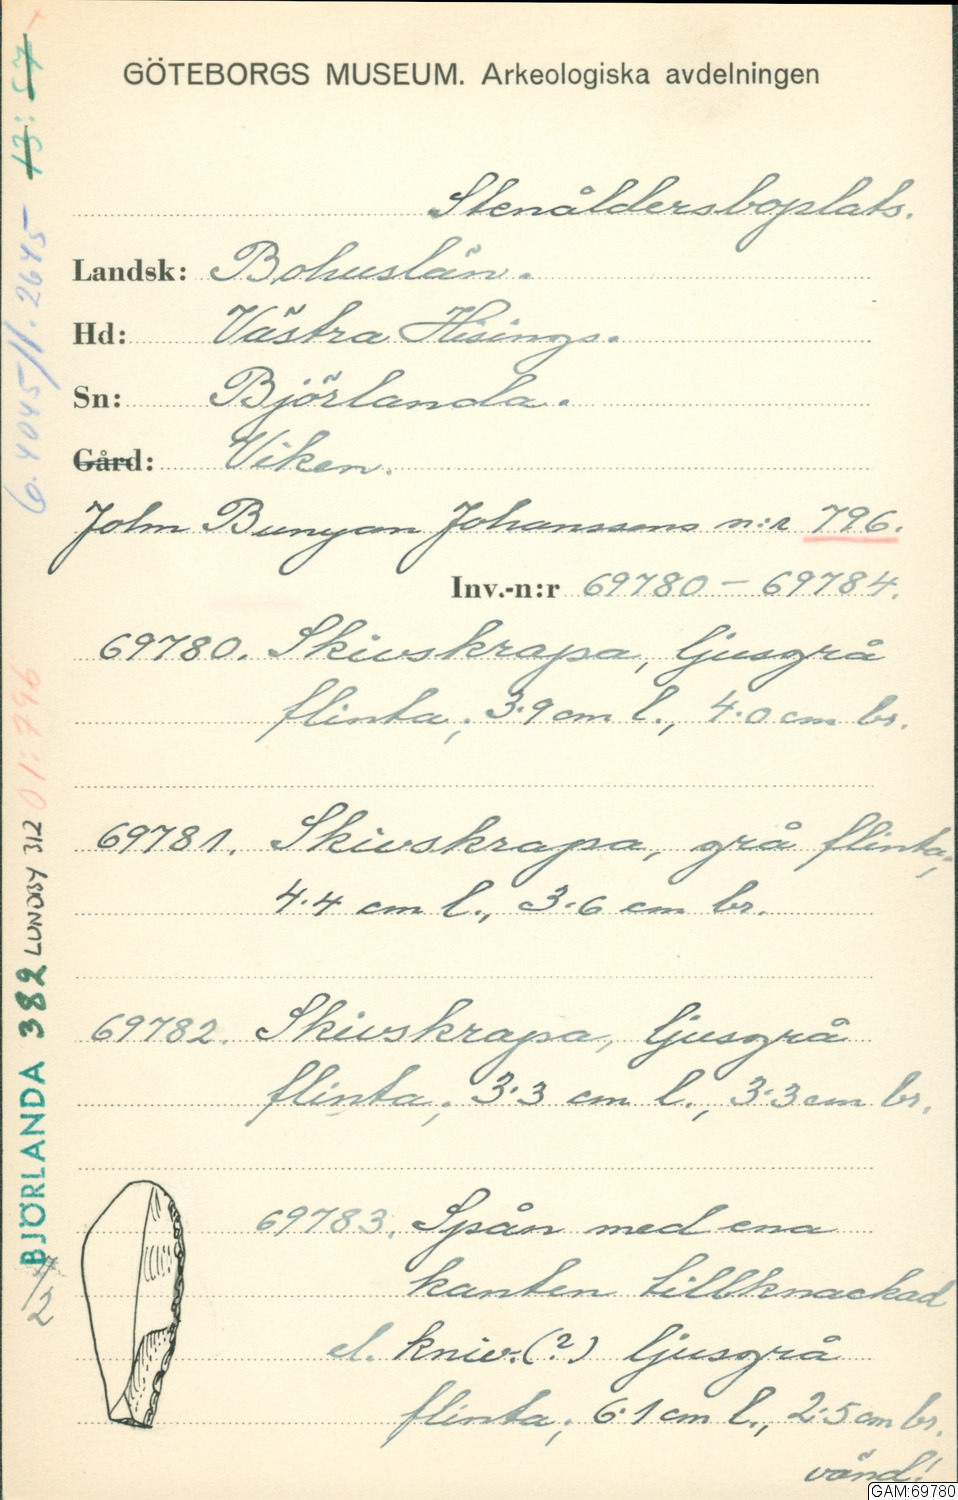 GÖTEBORGS MUSEUM. Arkeologiska avdelningen
Stenåldersboplats.
Landsk: Bohuslän.
Hd: Västra Hisings.
Sn: Björlanda.
Gård: Viken.
John Bunyan Johanssons n:r 796.
Inv.-n:r 69780 – 69784.
69780. Skivskrapa, ljusgrå
flinta; 3.9 cm l., 4.0 cm br.
69781. Skivskrapa, grå flinta,
4.4 cm l., 3.6 cm br.
69782. Skivskrapa, ljusgrå
flinta; 3.3 cm l., 3.3 cm br.
69783. Spån med ena
kanten tillknackad
el. kniv.(?) ljusgrå
flinta; 6.1 cm l., 2.5 cm br.
vänd!
BJÖRLANDA 382 LUNDBY 312 01:796
6.4045/1.2645 – 13:57
GAM:69780